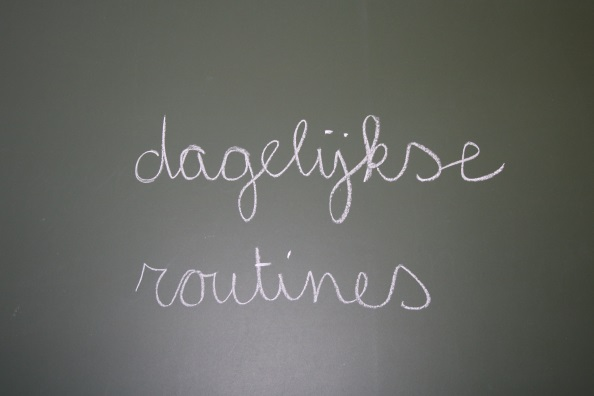 dagelijkse
routines